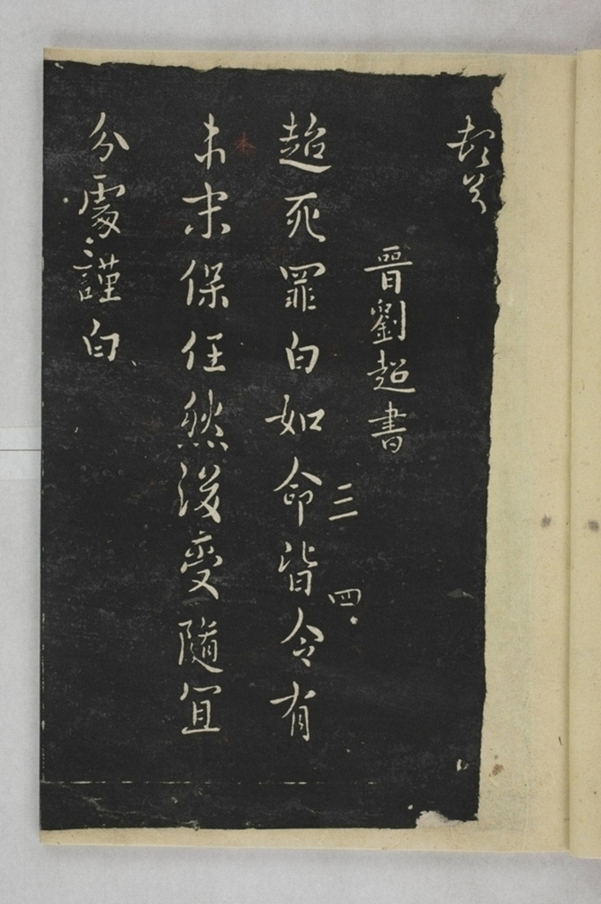 頓首
晉劉超書
超死罪白如命皆令有
三
四
本末保任然後受隨宜
分處謹白